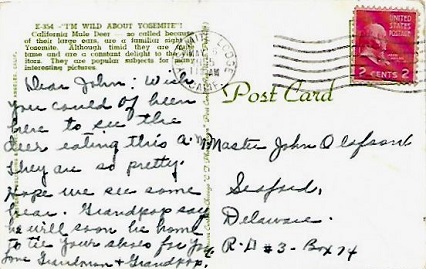 E-354 - "I'M WILD ABOUT YOSEMITE"!
California Mule Deer - so called because
of their large ears, are a familiar sight in
Yosemite. Although timid they are quite
tame and are a constant delight to the visi-
tors. They are popular subjects for many
interesting pictures.
Dear John: Wish
you could of been
here to see the
deer eating this a.m.
They are so pretty.
Hope we see some
bear. Grandpop say
he will soon be home
to tie your shoes for you
Love Grandmom & Grandpop
SAN JOSE
MAY
CALIF
2 CENTS 2
Post Card
Master John Olafson
Seaford,
Delaware.
R.D #3 - Box 74